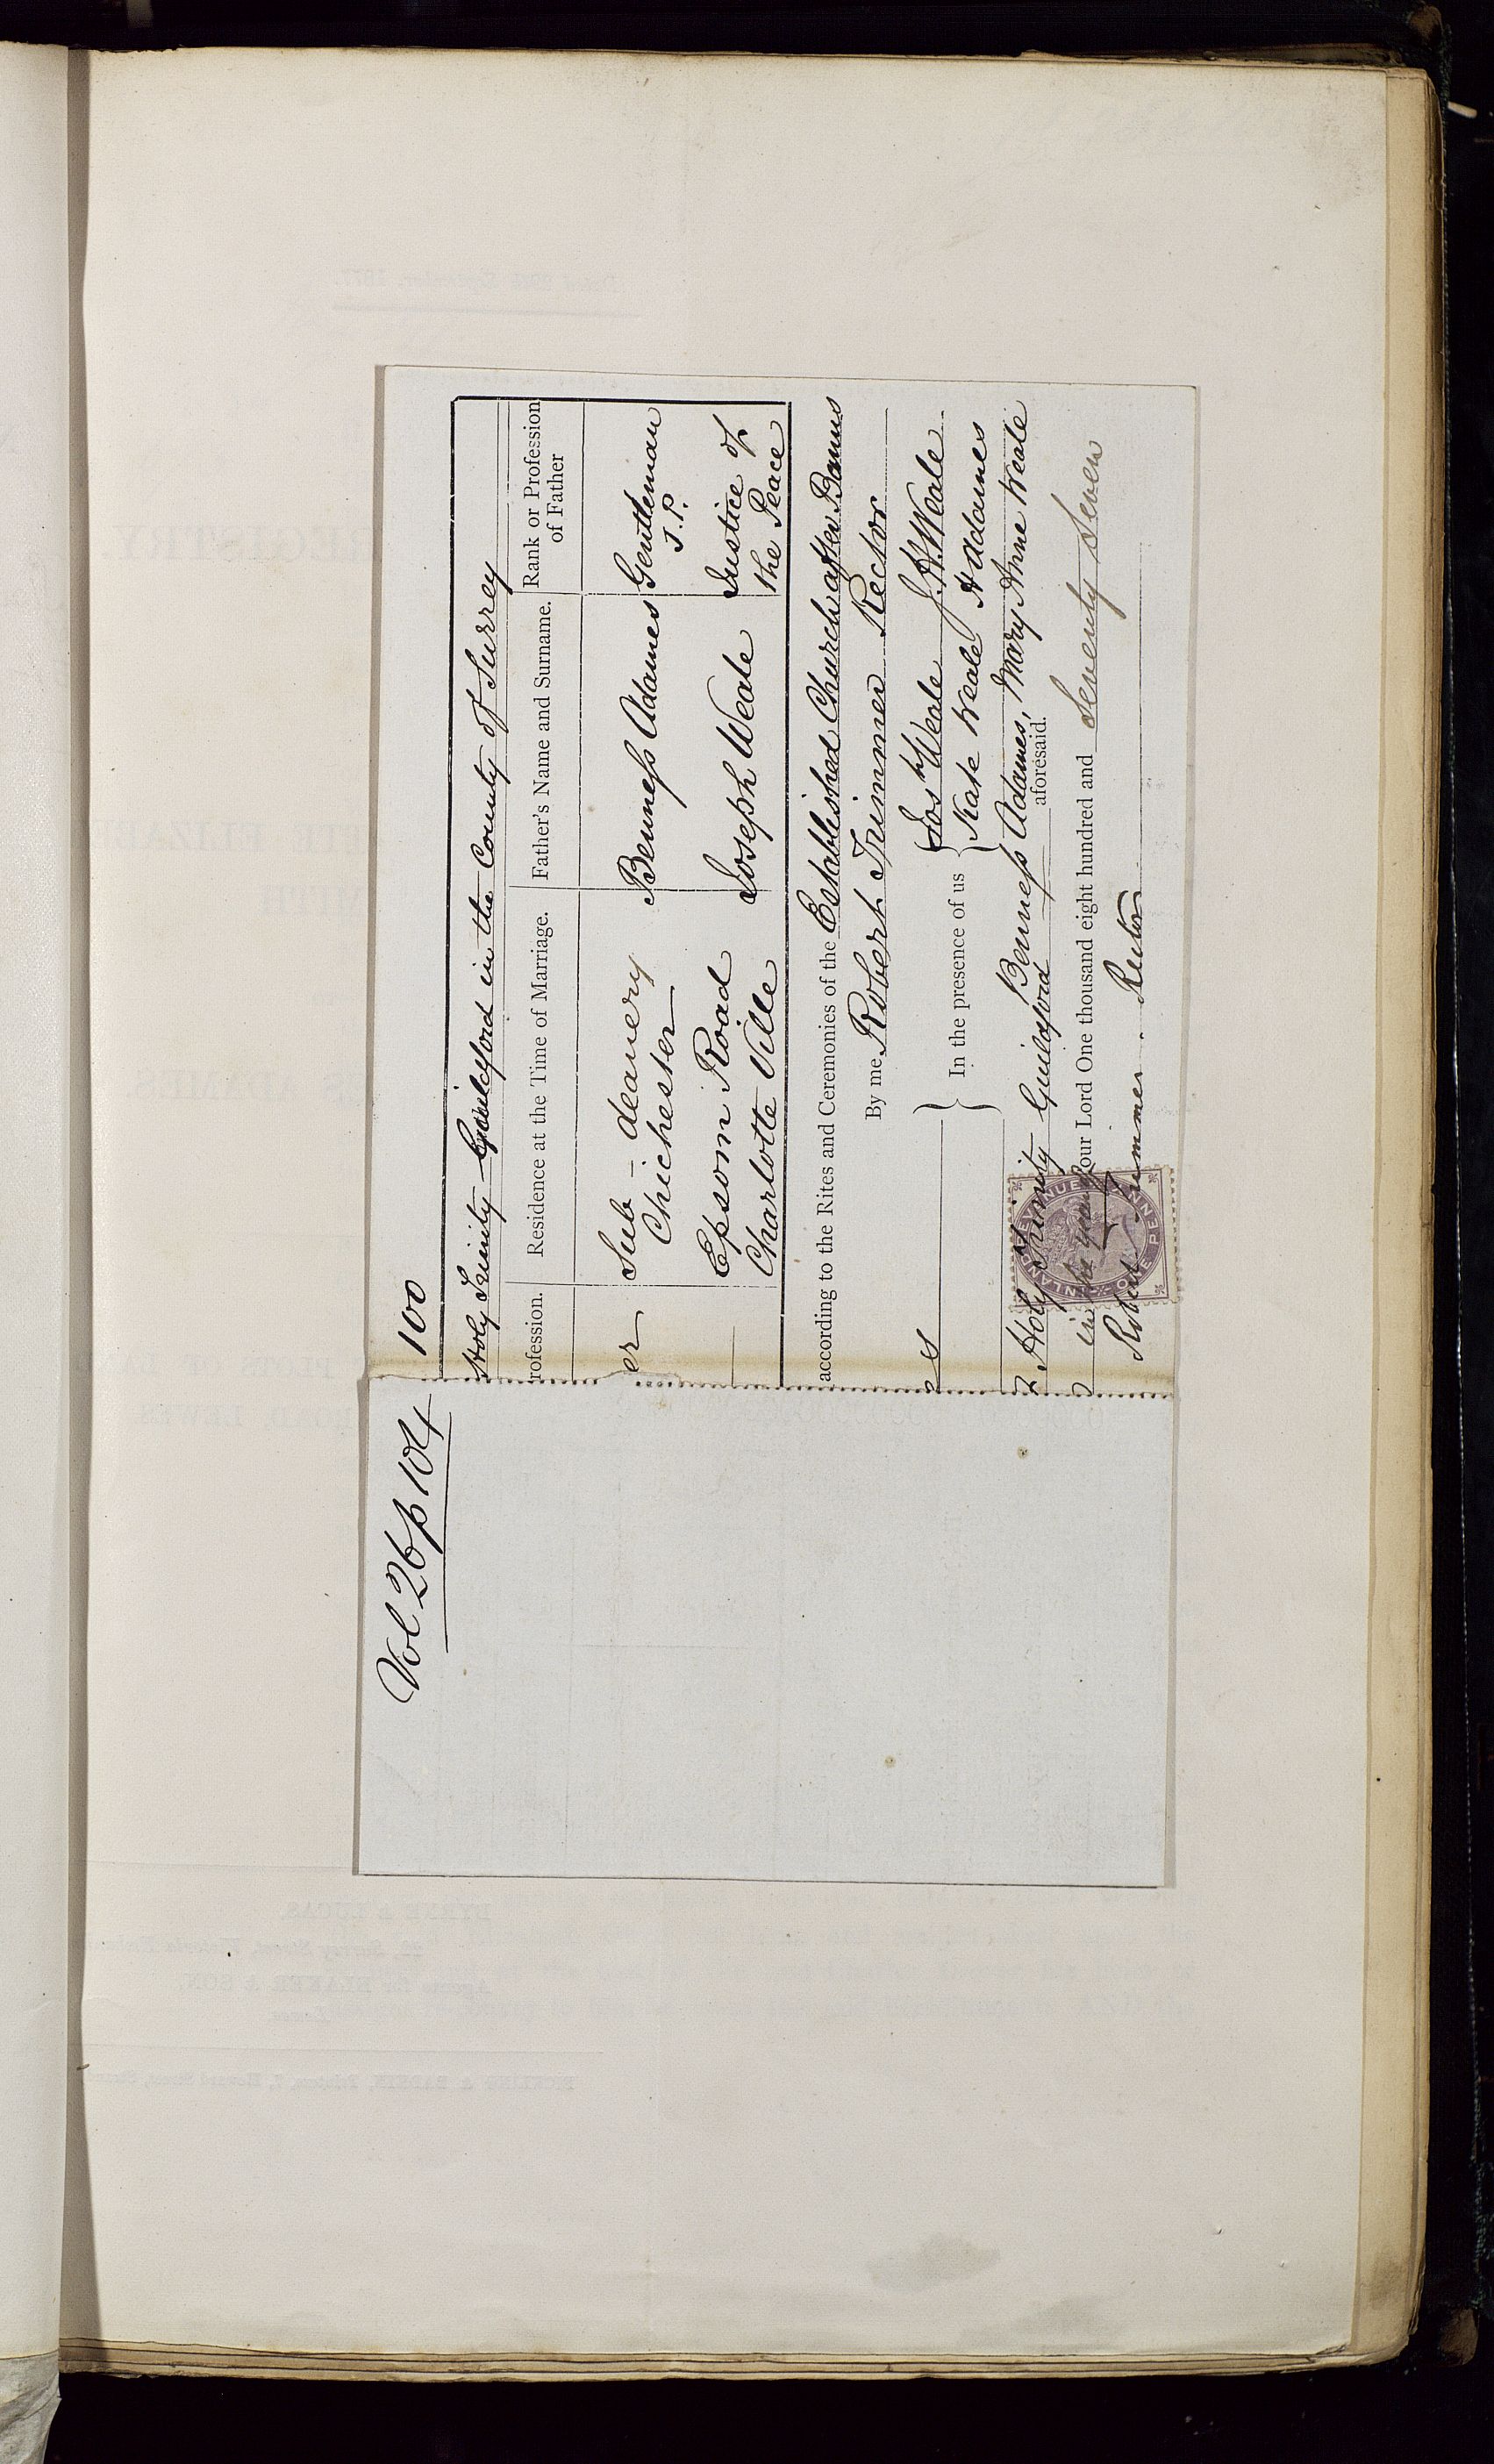 Vol 26 p 104
100
Holy Trinity Guildford in the County of Surrey
rofession. Residence at the Time of Marriage. Father's Name and Surname. Rank or Profession of Father
er Sub-deanery Chichester Benneſs Adames Gentleman J.P.
Epsom Road Charlotte Ville Joseph Weale Justice of the Peace
according to the Rites and Ceremonies of the Established Church after Banns
By me, Robert Trimmer Rector
es In the presence of us Josh Weale J.H. Weale
Kate Weale H Adames
Benneſs Adames, Mary Anne Weale
Holy Trinity Guildford aforesaid.
in the year of our Lord One thousand eight hundred and Seventy Seven
Robert Trimmer. Rector
INLAND REVENUE
ONE PENNY
Dated 29th September, 1877.
REGISTRY
BYRNE & LUCAS,
Surrey Street, Victoria
Agents for BLAKER & SON,
Lewes.